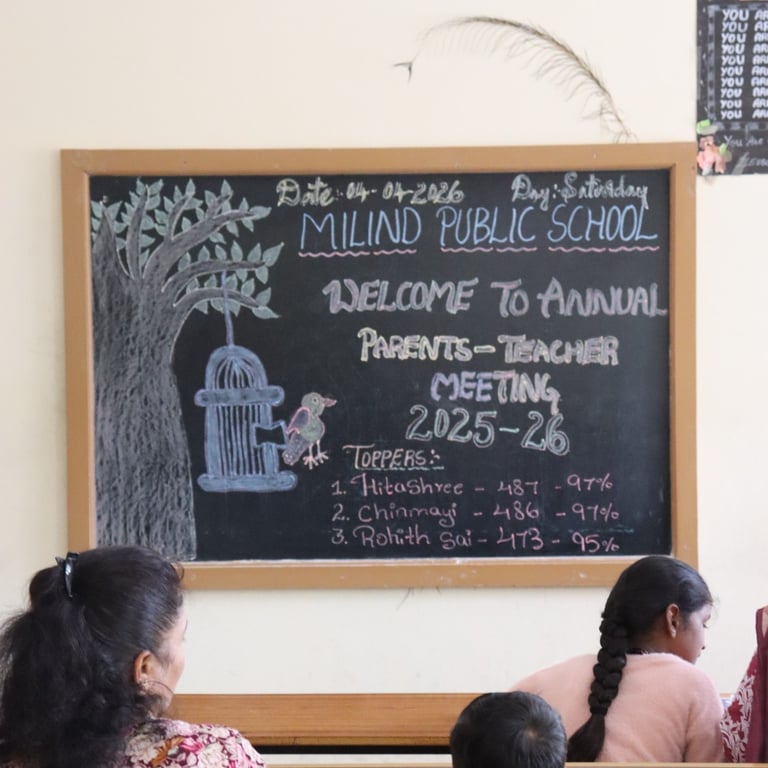 Date:- 04-04-2026 Day:- Saturday
MILIND PUBLIC SCHOOL
WELCOME TO ANNUAL
PARENTS-TEACHER
MEETING
2025-26
TOPPERS:-
1. Hitashree - 487 - 97%
2. Chinmayi - 486 - 97%
3. Rohith Sai - 473 - 95%
YOU AR
YOU AR
YOU AR
YOU AR
YOU AR
YOU AR
YOU AR
YOU AR
YOU AR
You Are